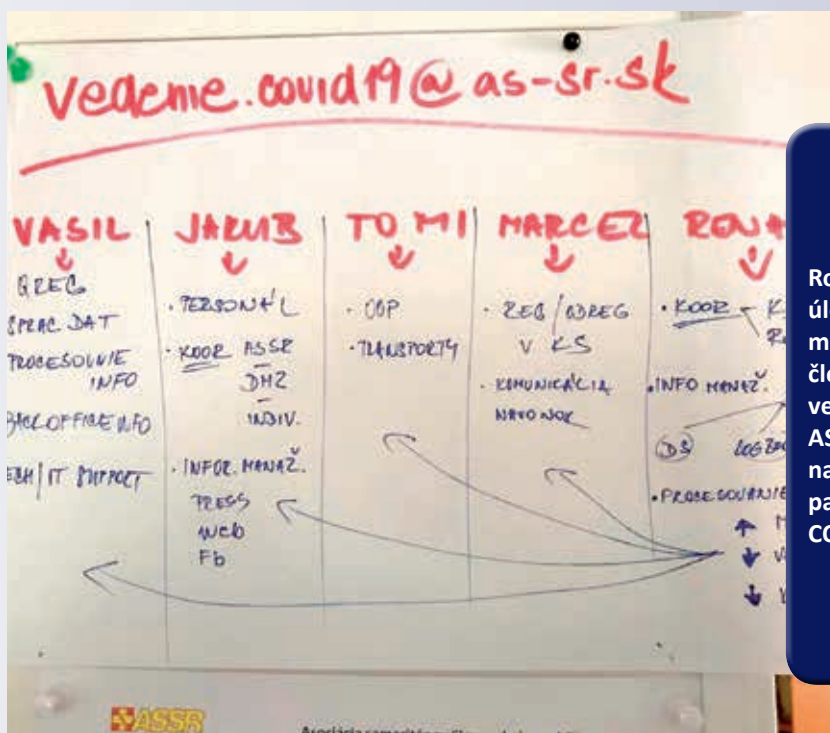 vedenie.covid19@as-sr.sk
VASIL
SPRAC. DAT
PROCESOVNIE
INFO
BACKOFFICE INFO
IT SUPPORT
JAKUB
• PERSONÁL
• KOOR ASSR
DHZ
INDIV.
• INFOR. MANAŽ.
PRESS
Web
Fb
TOMI
• OOP
• TRANSPORTY
MARCEL
• REG/ODREG
V KS
• KOMUNIKÁCIA
NAVONOK
RENA
• KOOR
• INFO MANAŽ.
DS
• PROCESOVANIE
ASSR